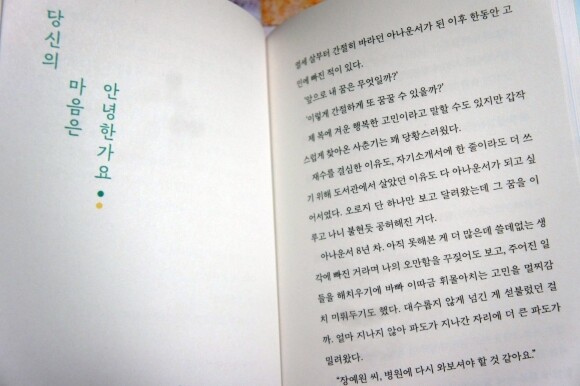 당신의
마음은
안녕한가요
열세 살부터 간절히 바라던 아나운서가 된 이후 한동안 고
민에 빠진 적이 있다.
‘앞으로 내 꿈은 무엇일까?’
‘이렇게 간절하게 또 꿈꿀 수 있을까?’
제 복에 겨운 행복한 고민이라고 말할 수도 있지만 갑작
스럽게 찾아온 사춘기는 꽤 당황스러웠다.
재수를 결심한 이유도, 자기소개서에 한 줄이라도 더 쓰
기 위해 도서관에서 살았던 이유도 다 아나운서가 되고 싶
어서였다. 오로지 단 하나만 보고 달려왔는데 그 꿈을 이
루고 나니 불현듯 공허해진 거다.
아나운서 8년 차. 아직 못해본 게 더 많은데 쓸데없는 생
각에 빠진 거라며 나의 오만함을 꾸짖어도 보고, 주어진 일
들을 해치우기에 바빠 이따금 휘몰아치는 고민을 멀찌감
치 미뤄두기도 했다. 대수롭지 않게 넘긴 게 섣불렀던 걸
까. 얼마 지나지 않아 파도가 지나간 자리에 더 큰 파도가
밀려왔다.
“장예원 씨, 병원에 다시 와보셔야 할 것 같아요.”